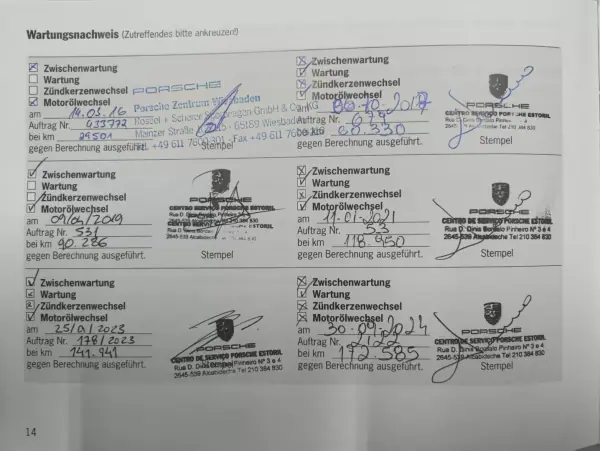 Wartungsnachweis (Zutreffendes bitte ankreuzen!)
Zwischenwartung
Wartung
Zündkerzenwechsel
Motorölwechsel
am 14.03.16
Auftrag Nr. 433772
bei km 29501
gegen Berechnung ausgeführt.
Stempel
PORSCHE
Porsche Zentrum Wiesbaden
Mainzer Straße
65189 Wiesbaden
Zwischenwartung
Wartung
Zündkerzenwechsel
Motorölwechsel
am
Auftrag Nr. 677
bei km 60.330
gegen Berechnung ausgeführt.
PORSCHE
CENTRO SERVIÇO PORSCHE ESTORIL
Stempel
Zwischenwartung
Wartung
Zündkerzenwechsel
Motorölwechsel
am 09/01/2019
Auftrag Nr. 531
bei km 90.286
gegen Berechnung ausgeführt.
Stempel
Zwischenwartung
Wartung
Zündkerzenwechsel
Motorölwechsel
am 11-01-2021
Auftrag Nr. 53
bei km 118.950
gegen Berechnung ausgeführt.
PORSCHE
CENTRO DE SERVIÇO PORSCHE ESTORIL
Rua D. Dinis Bordalo Pinheiro Nº 3 e 4
2645-539 Alcabideche Tel 210 364 830
Stempel
Zwischenwartung
Wartung
Zündkerzenwechsel
Motorölwechsel
am 25/01/2023
Auftrag Nr. 178/2023
bei km 141.941
gegen Berechnung ausgeführt.
PORSCHE
CENTRO DE SERVIÇO PORSCHE ESTORIL
Rua D. Dinis Bordalo Pinheiro Nº 3 e 4
2645-539 Alcabideche Tel 210 364 830
Stempel
Zwischenwartung
Wartung
Zündkerzenwechsel
Motorölwechsel
am 30-09-2024
Auftrag Nr. 2122
bei km 172.585
gegen Berechnung ausgeführt.
PORSCHE
CENTRO DE SERVIÇO PORSCHE ESTORIL
Rua D. Dinis Bordalo Pinheiro Nº 3 e 4
2645-539 Alcabideche Tel 210 364 830
Stempel
14